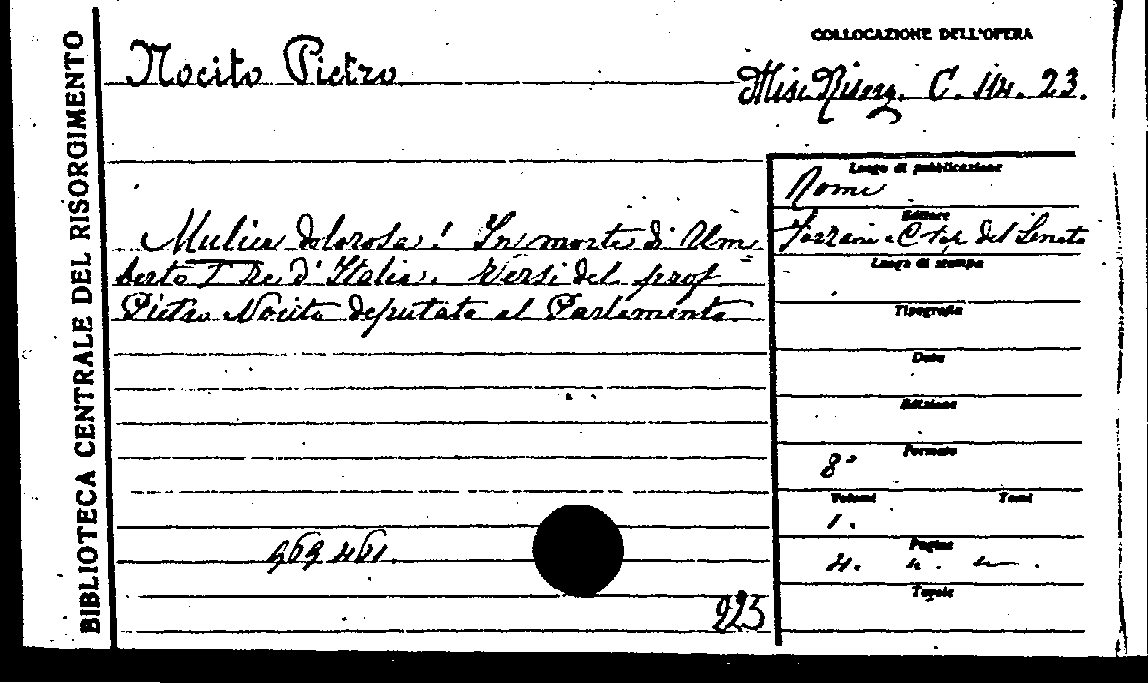 BIBLIOTECA CENTRALE DEL RISORGIMENTO
Nocito Pietro
COLLOCAZIONE DELL'OPERA
Misc. Risorg. C. 114. 23.
dolorosa! In morte di Um
berto I Re d'Italia. Versi del prof
Pietro Nocito deputato al Parlamento
Luogo di pubblicazione
Roma
Editore
Forzani e C. tip. del Senato
Luogo di stampa
Tipografia
Data
Edizione
Formato
8°
Volumi Tomi
1.
Pagine
4.
Tavole
223